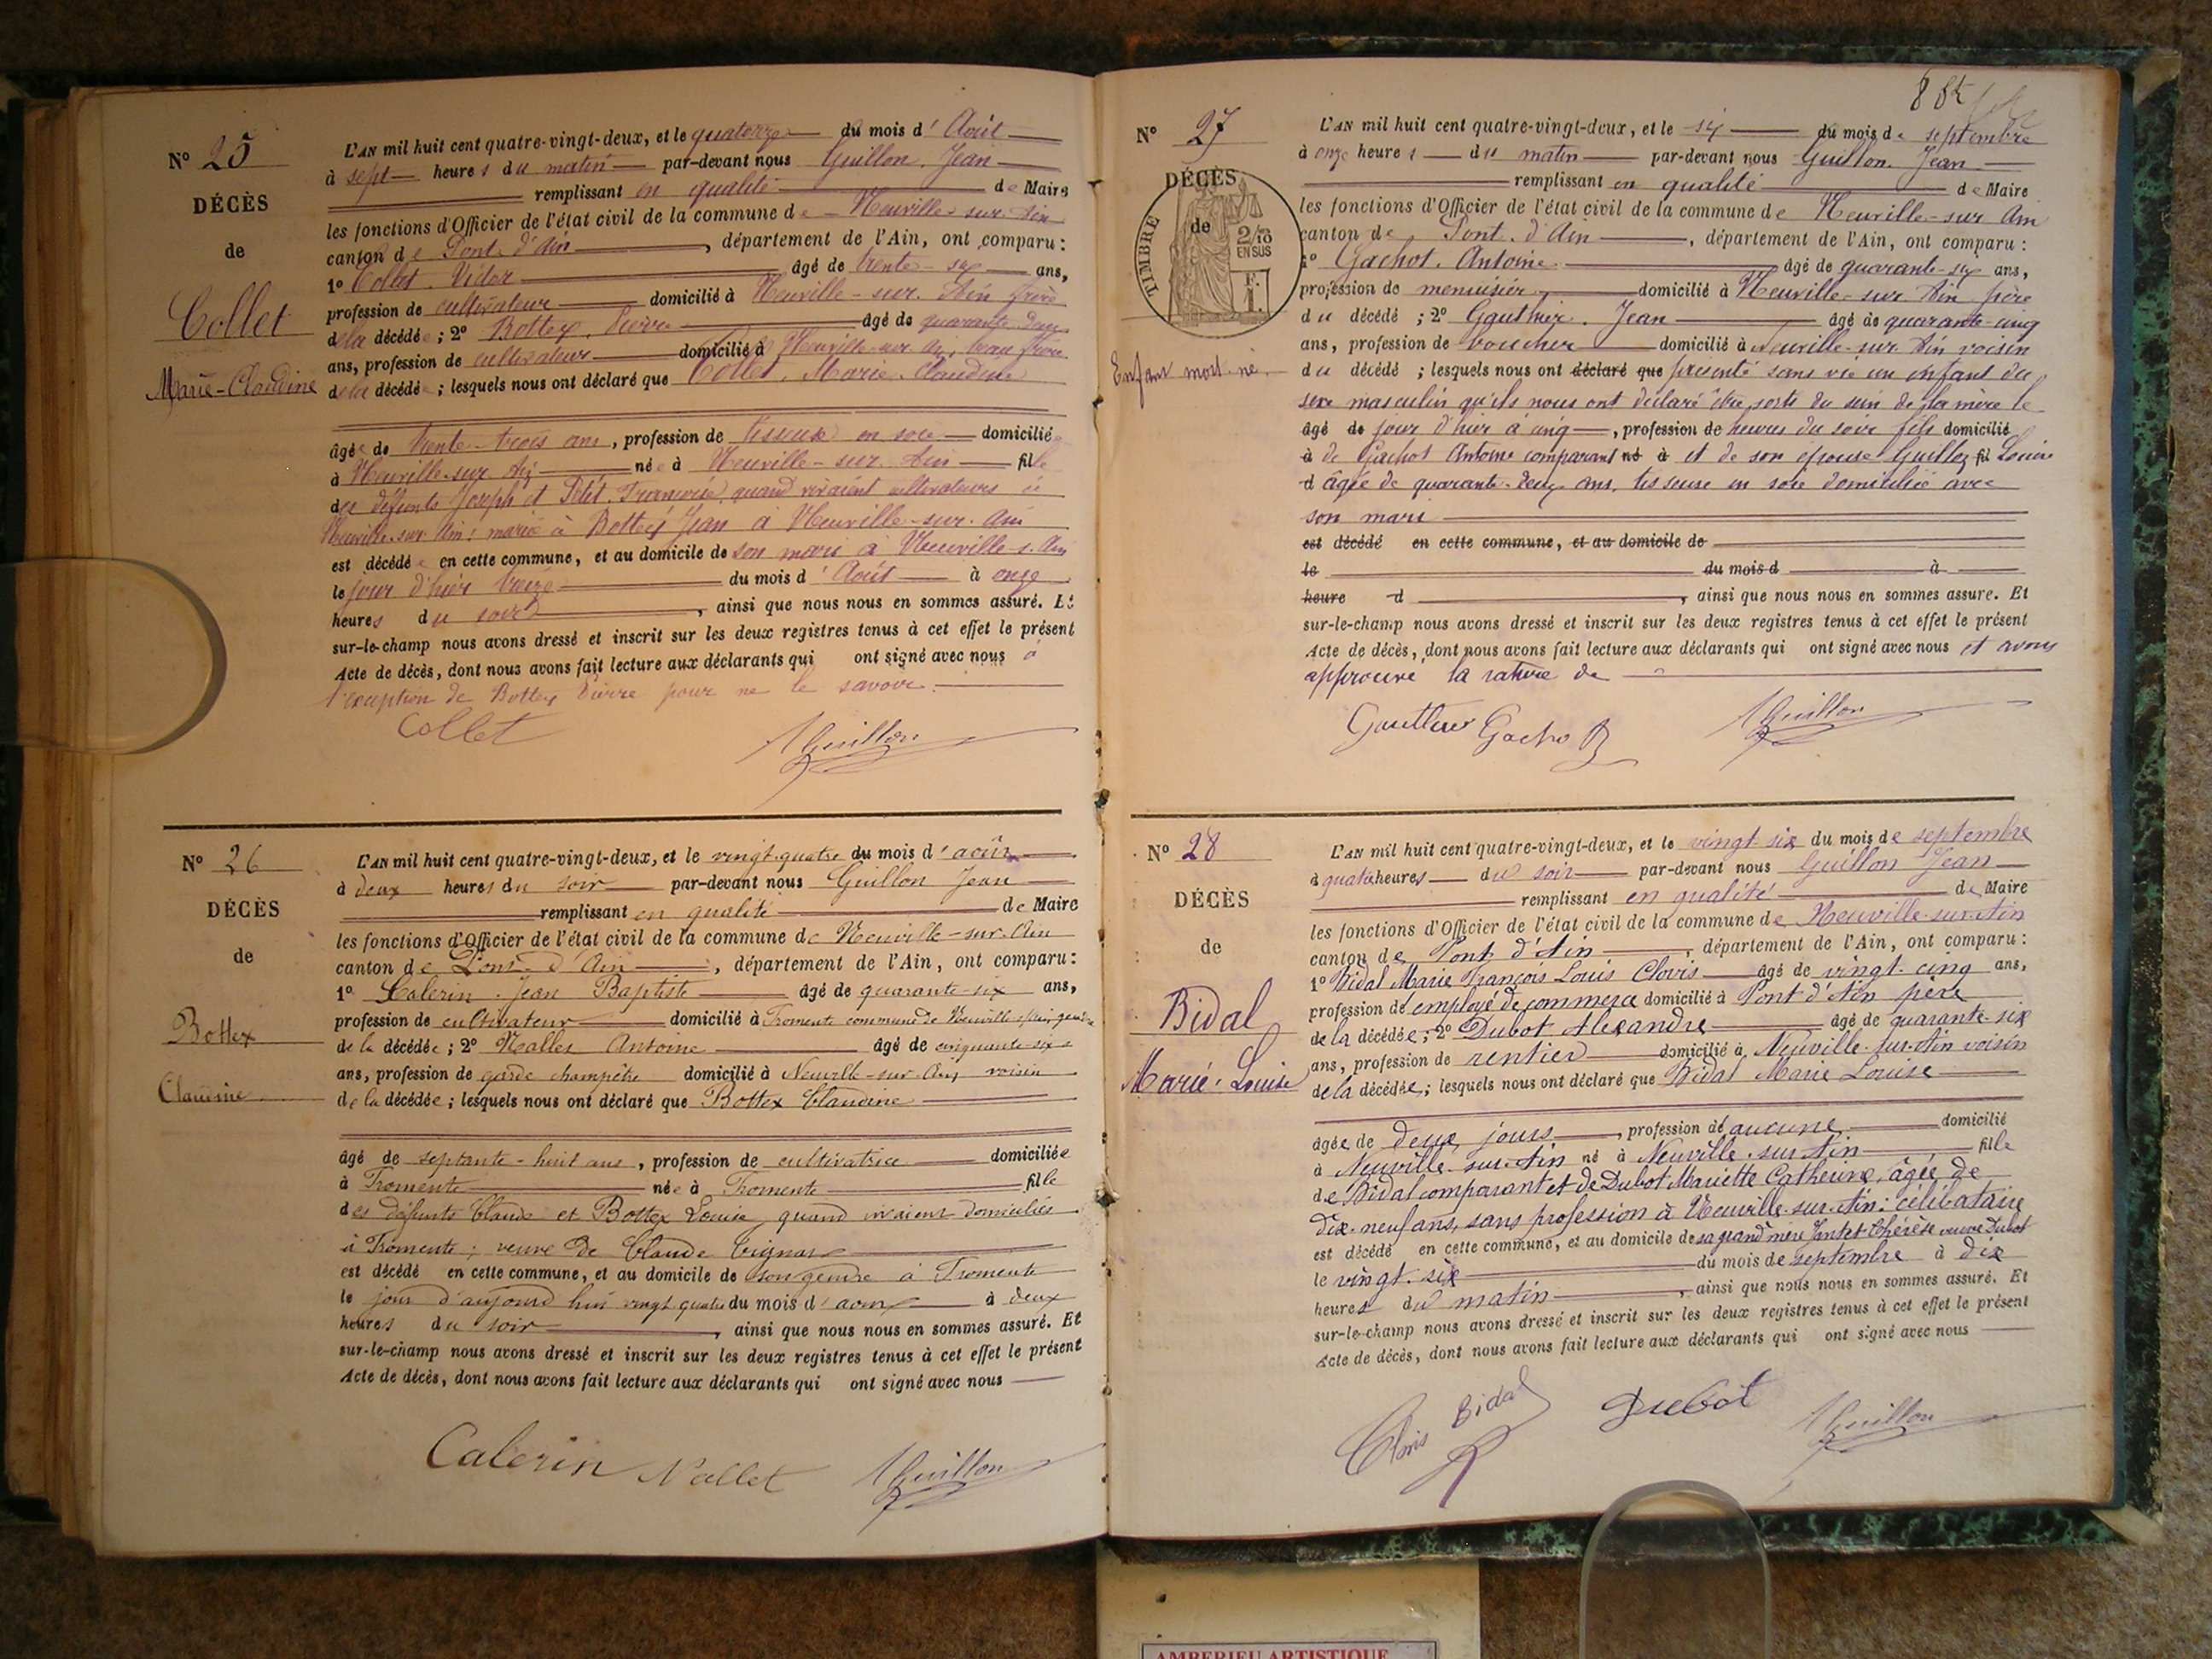 N° 25
DÉCÈS
de
Collet
Marie-Claudine
L'AN mil huit cent quatre-vingt-deux, et le quatorze du mois d'Août
à sept heures du matin par-devant nous Guillon, Jean
remplissant en qualité de Maire
les fonctions d'Officier de l'état civil de la commune de Neuville-sur-Ain
canton de Pont-d'Ain, département de l'Ain, ont comparu:
1° Collet, Victor âgé de trente-six ans,
profession de cultivateur domicilié à Neuville-sur-Ain frère
de la décédée; 2° Bottex, Pierre âgé de quarante deux
ans, profession de cultivateur domicilié à Neuville-sur-Ain, beau frère
de la décédée; lesquels nous ont déclaré que Collet, Marie-Claudine
âgée de trente-trois ans, profession de tisseuse en soie domiciliée
à Neuville-sur-Ain née à Neuville-sur-Ain fille
des défunts Joseph et Petit, Françoise, quand vivaient cultivateurs à
Neuville-sur-Ain; mariée à Bottex Jean à Neuville-sur-Ain
est décédée en cette commune, et au domicile de son mari à Neuville-s-Ain
le jour d'hier treize du mois d'Août à onze
heures du soir, ainsi que nous nous en sommes assuré. Et
sur-le-champ nous avons dressé et inscrit sur les deux registres tenus à cet effet le présent
Acte de décès, dont nous avons fait lecture aux déclarants qui ont signé avec nous à
l'exception de Bottex Pierre pour ne le savoir.
Collet JGuillon
N° 26
DÉCÈS
de
Bottex
Claudine
L'AN mil huit cent quatre-vingt-deux, et le vingt-quatre du mois d'août
à deux heures du soir par-devant nous Guillon Jean
remplissant en qualité de Maire
les fonctions d'Officier de l'état civil de la commune de Neuville-sur-Ain
canton de Pont-d'Ain, département de l'Ain, ont comparu:
1° Calerin Jean Baptiste âgé de quarante-six ans,
profession de cultivateur domicilié à Fromente commune de Neuville s/Ain, gendre
de la décédée; 2° Nallet Antoine âgé de cinquante-six
ans, profession de garde champêtre domicilié à Neuville-sur-Ain voisin
de la décédée; lesquels nous ont déclaré que Bottex Claudine
âgé de septante-huit ans, profession de cultivatrice domiciliée
à Fromente née à Fromente fille
des défunts Claude et Bottex Louise, quand vivaient domiciliés
à Fromente; veuve de Claude
est décédé en cette commune, et au domicile de son gendre à Fromente
le jour d'aujourd'hui vingt quatre du mois d'août à deux
heures du soir, ainsi que nous nous en sommes assuré. Et
sur-le-champ nous avons dressé et inscrit sur les deux registres tenus à cet effet le présent
Acte de décès, dont nous avons fait lecture aux déclarants qui ont signé avec nous
Calerin Nallet JGuillon
N° 27
DÉCÈS
de
TIMBRE
2/10
EN SUS
F.
1.
Enfant mort-né.
L'AN mil huit cent quatre-vingt-deux, et le six du mois de septembre
à onze heures du matin par-devant nous Guillon, Jean
remplissant en qualité de Maire
les fonctions d'Officier de l'état civil de la commune de Neuville-sur-Ain
canton de Pont-d'Ain, département de l'Ain, ont comparu:
1° Gachot, Antoine âgé de quarante-six ans,
profession de menuisier domicilié à Neuville-sur-Ain père
du décédé; 2° Gauthier, Jean âgé de quarante-cinq
ans, profession de boucher domicilié à Neuville-sur-Ain voisin
du décédé; lesquels nous ont déclaré que présenté sans vie un enfant du
sexe masculin qu'ils nous ont déclaré être sorti du sein de sa mère le
âgé de jour d'hier à cinq, profession de heures du soir fils domicilié
à de Gachot Antoine comparant né à et de son épouse Guillon fil Louise
d âgée de quarante-deux ans, tisseuse en soie domiciliée avec
son mari
est décédé en cette commune, et au domicile de
le du mois d à
heure d, ainsi que nous nous en sommes assuré. Et
sur-le-champ nous avons dressé et inscrit sur les deux registres tenus à cet effet le présent
Acte de décès, dont nous avons fait lecture aux déclarants qui ont signé avec nous et avons
approuvé la rature de
Gauthier Gachot JGuillon
N° 28
DÉCÈS
de
Bidal
Marie-Louise
L'AN mil huit cent quatre-vingt-deux, et le vingt-six du mois de septembre
à quatre heures du soir par-devant nous Guillon Jean
remplissant en qualité de Maire
les fonctions d'Officier de l'état civil de la commune de Neuville-sur-Ain
canton de Pont d'Ain, département de l'Ain, ont comparu:
1° Bidal Marie François Louis Clovis âgé de vingt-cinq ans,
profession de employé de commerce domicilié à Pont d'Ain père
de la décédée; 2° Dubot Alexandre âgé de quarante-six
ans, profession de rentier domicilié à Neuville-sur-Ain voisin
de la décédée; lesquels nous ont déclaré que Bidal Marie Louise
âgée de deux jours, profession de aucune domicilié
à Neuville-sur-Ain né à Neuville-sur-Ain fille
de Bidal comparant et de Dubot Mariette Catherine, âgée de
dix-neuf ans, sans profession à Neuville-sur-Ain; célibataire
est décédé en cette commune, et au domicile de sa grand'mère Jantet Thérèse veuve Dubot
le vingt-six du mois de septembre à dix
heures du matin, ainsi que nous nous en sommes assuré. Et
sur-le-champ nous avons dressé et inscrit sur les deux registres tenus à cet effet le présent
Acte de décès, dont nous avons fait lecture aux déclarants qui ont signé avec nous
Clovis Bidal Dubot JGuillon
AMBERIEU ARTISTIQUE